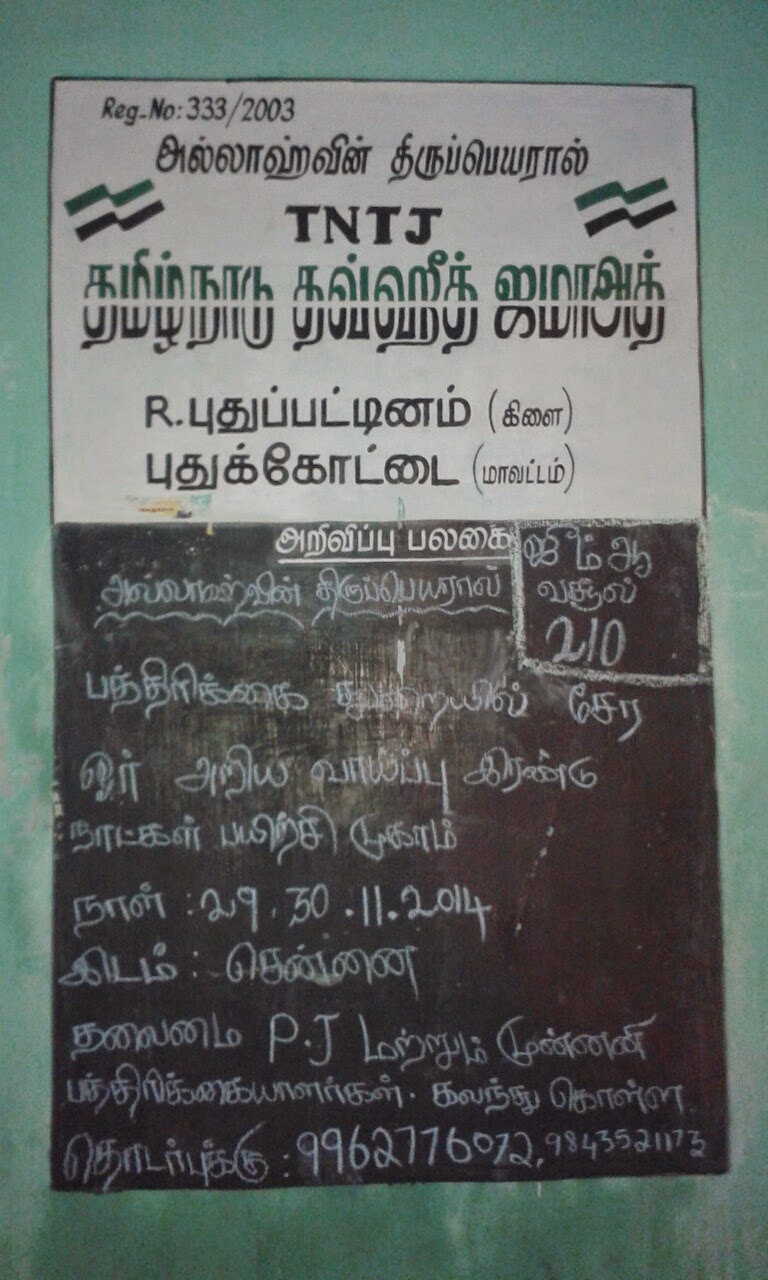 Reg-No: 333/2003
அல்லாஹ்வின் திருப்பெயரால்
TNTJ
தமிழ்நாடு தவ்ஹீத் ஜமாஅத்
R.புதுப்பட்டினம் (கிளை)
புதுக்கோட்டை (மாவட்டம்)
அறிவிப்பு பலகை
ஜீம்ஆ
வசூல்
210
அல்லாஹ்வின் திருப்பெயரால்
பத்திரிக்கை துறையில் சேர
ஓர் அறிய வாய்ப்பு இரண்டு
நாட்கள் பயிற்சி முகாம்
நாள் : 29. 30 .11.2014
இடம் : சென்னை
தலைமை P.J மற்றும் முன்னனி
பத்திரிக்கையாளர்கள். கலந்து கொள்ள
தொடர்புக்கு : 9962776072, 9843521173